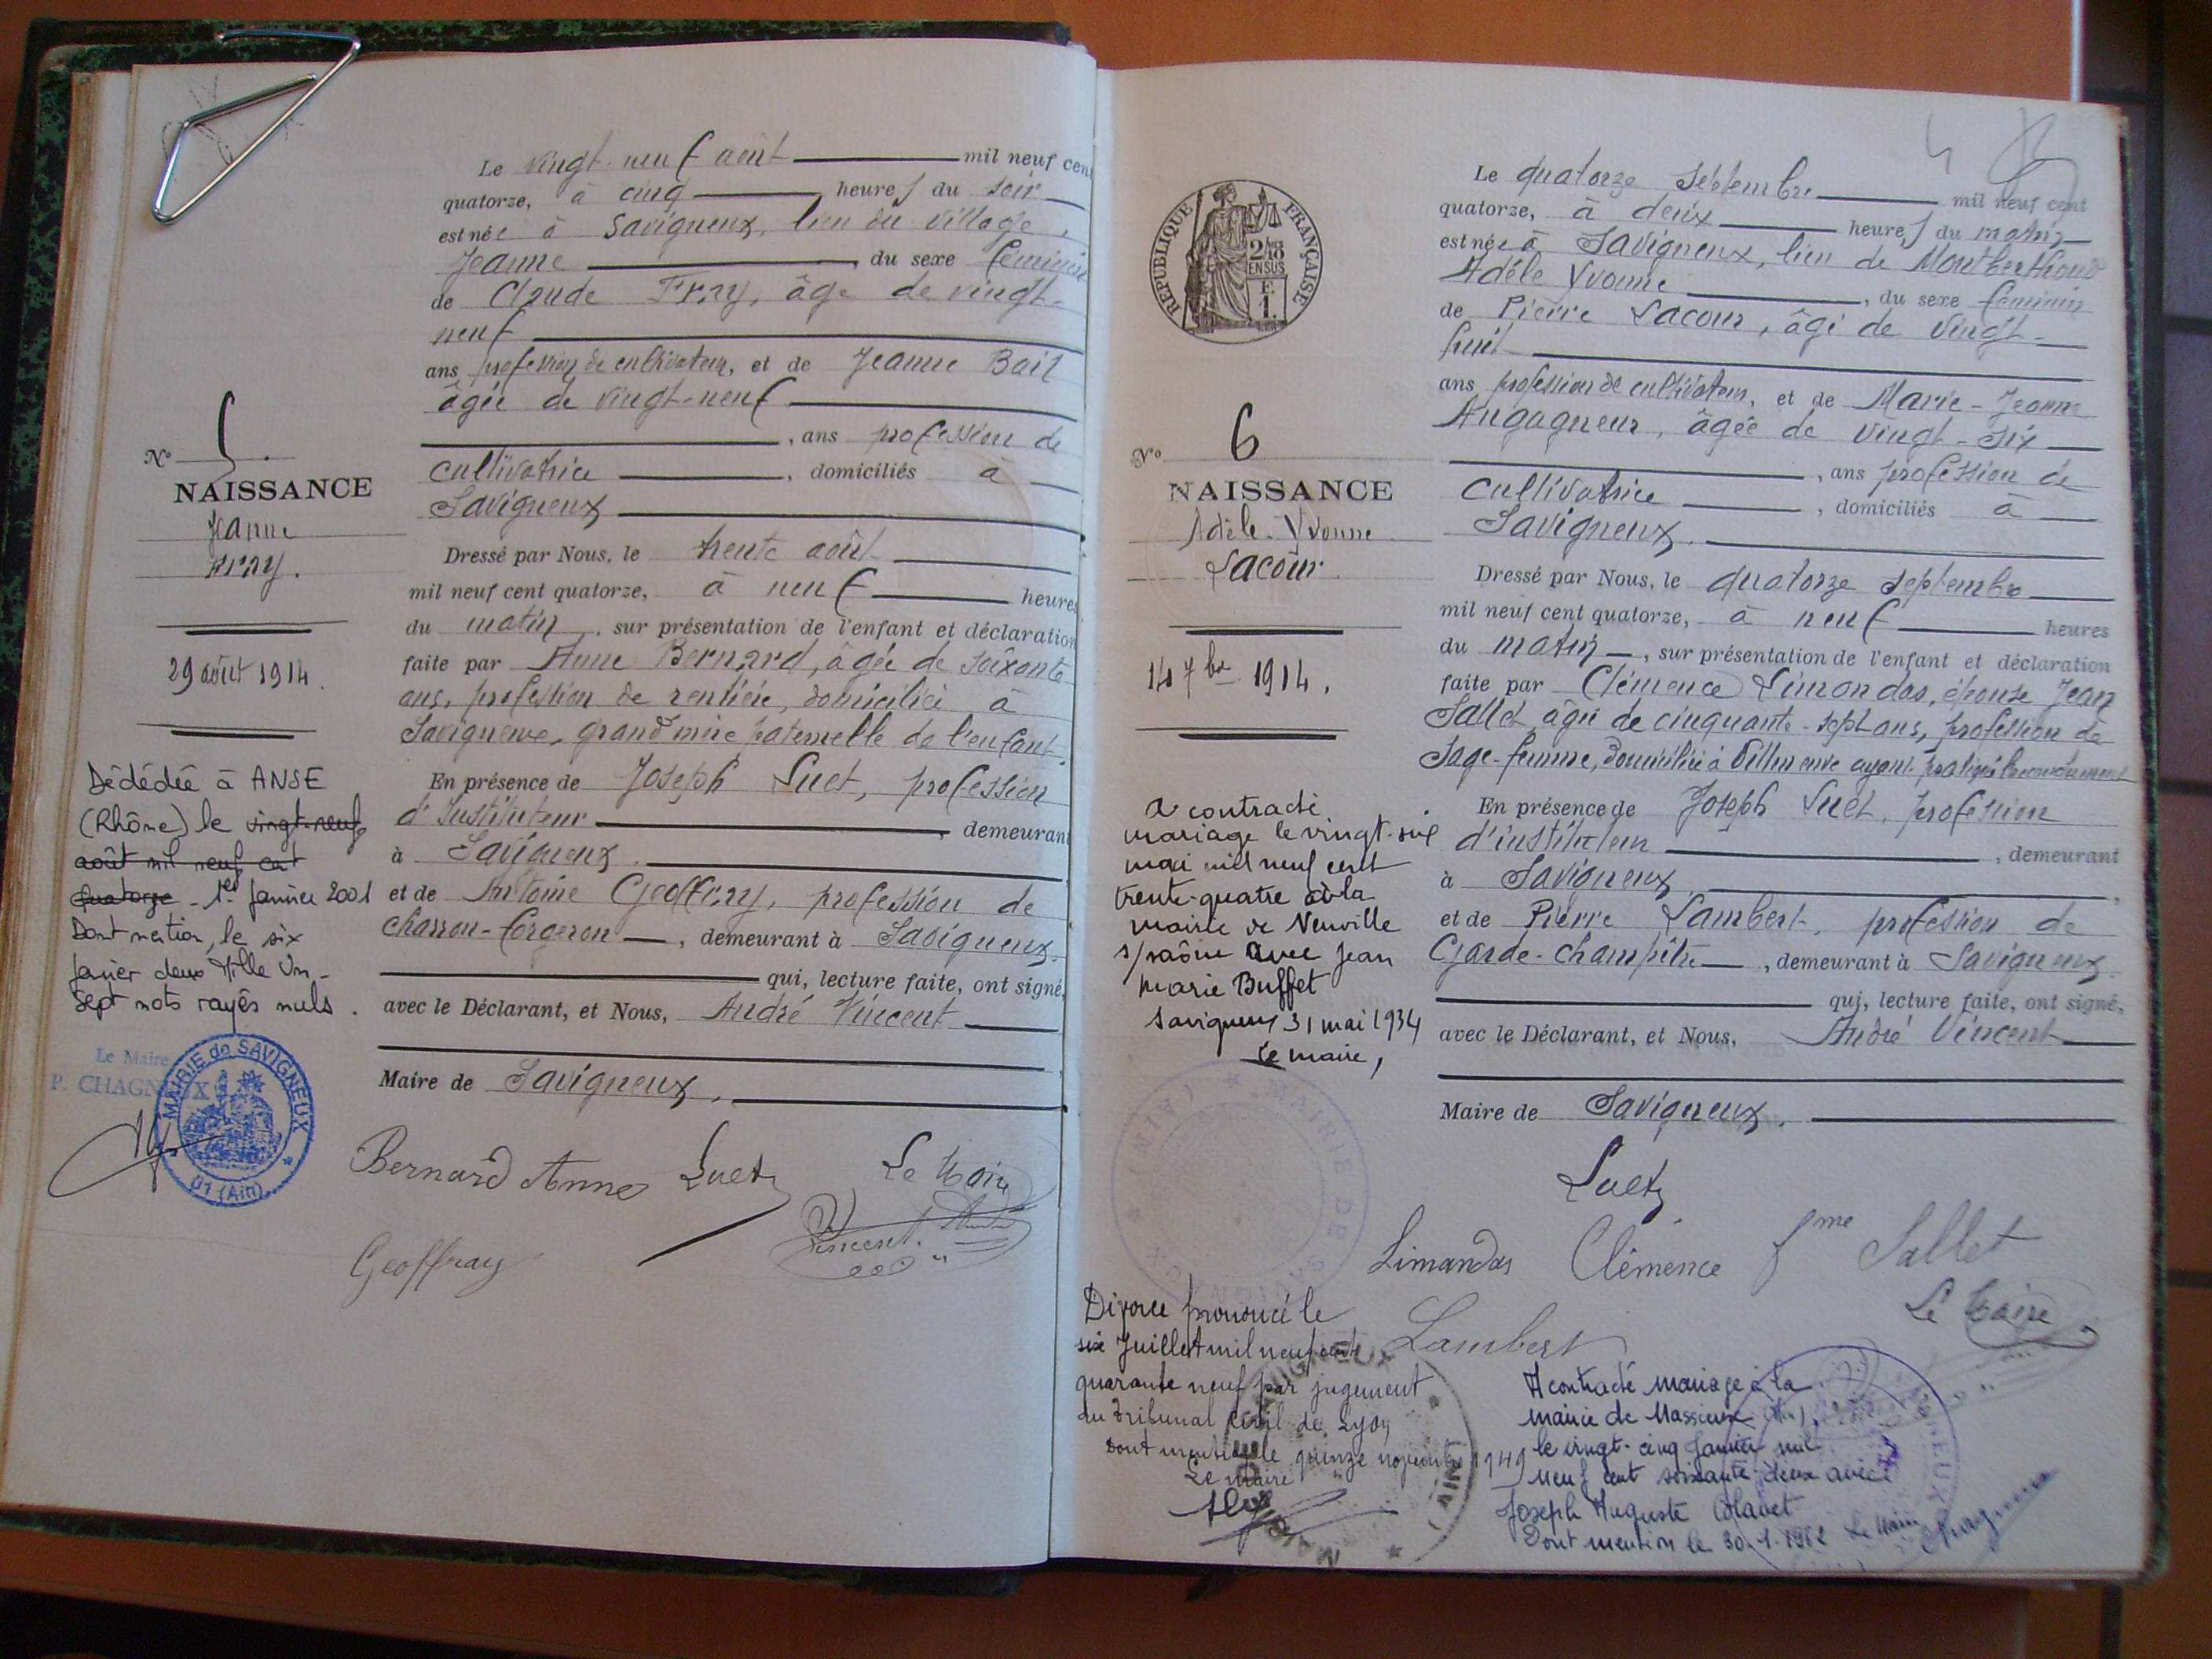 Le vingt-neuf août mil neuf cent
quatorze, à cinq heures du soir
est née à Savigneux, lieu du village,
Jeanne, du sexe féminin
de Claude Fray, âgé de vingt-
neuf
ans profession de cultivateur, et de Jeanne Bail
âgée de vingt-neuf
, ans profession de
cultivatrice, domiciliés à
Savigneux
Dressé par Nous, le trente août
mil neuf cent quatorze, à neuf heures
du matin, sur présentation de l'enfant et déclaration
faite par Anne Bernard, âgée de soixante
ans, profession de rentière, domiciliée à
Savigneux, grand'mère paternelle de l'enfant.
En présence de Joseph Luet, profession
d'Instituteur, demeurant
à Savigneux
et de Antoine Geoffray, profession de
charron-forgeron, demeurant à Savigneux
qui, lecture faite, ont signé,
avec le Déclarant, et Nous, André Vincent
Maire de Savigneux,
Bernard Anne Luet Le Maire
Vincent
Geoffray
No 5.
NAISSANCE
Jeanne
Fray.
29 août 1914.
Dédédée à ANSE
(Rhône) le vingt-neuf
août mil neuf cent
quatorze - 1er janvier 2001
Dont mention, le six
janvier deux Mille Un -
Sept mots rayés nuls.
Le Maire
P. CHAGNEUX
MAIRIE de SAVIGNEUX
01 (Ain)
Le quatorze septembre mil neuf cent
quatorze, à deux heures du matin
est née à Savigneux, lieu de Montberthoud
Adèle Yvonne, du sexe féminin
de Pierre Lacour, âgé de vingt-
huit
ans profession de cultivateur, et de Marie-Jeanne
Augagneur, âgée de vingt-six
, ans profession de
cultivatrice, domiciliés à
Savigneux.
Dressé par Nous, le quatorze septembre
mil neuf cent quatorze, à neuf heures
du matin, sur présentation de l'enfant et déclaration
faite par Clémence Limandas, épouse Jean
Sallet, âgée de cinquante-sept ans, profession de
Sage-femme, domiciliée à Villeneuve ayant pratiqué l'accouchement
En présence de Joseph Luet, profession
d'instituteur, demeurant
à Savigneux,
et de Pierre Lambert, profession de
Garde-champêtre, demeurant à Savigneux
qui, lecture faite, ont signé,
avec le Déclarant, et Nous, André Vincent
Maire de Savigneux.
Luet
Limandas Clémence fme Sallet
Lambert Le Maire
REPUBLIQUE FRANÇAISE
2/10
EN SUS
E.
1.
No 6
NAISSANCE
Adèle-Yvonne
Lacour.
14 7bre 1914.
a contracté
mariage le vingt-six
mai mil neuf cent
trente-quatre à la
mairie de Neuville
s/saône avec Jean
Marie Buffet
Savigneux 31 mai 1934
Le maire,
MAIRIE DE SAVIGNEUX (AIN)
Divorce prononcé le
six Juillet mil neuf cent
quarante neuf par jugement
du Tribunal Civil de Lyon
Dont mention le quinze novembre 1949
Le maire
SAVIGNEUX (AIN)
A contracté mariage à la
mairie de Massieux (Ain)
le vingt-cinq Janvier mil
neuf cent soixante-deux avec
Joseph Auguste
Dont mention le 30-1-1962 Le Maire